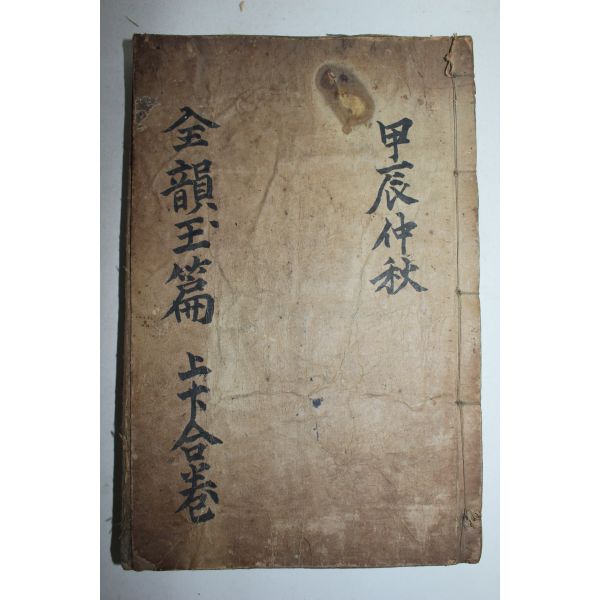 甲辰仲秋
全韻玉篇 上下合卷